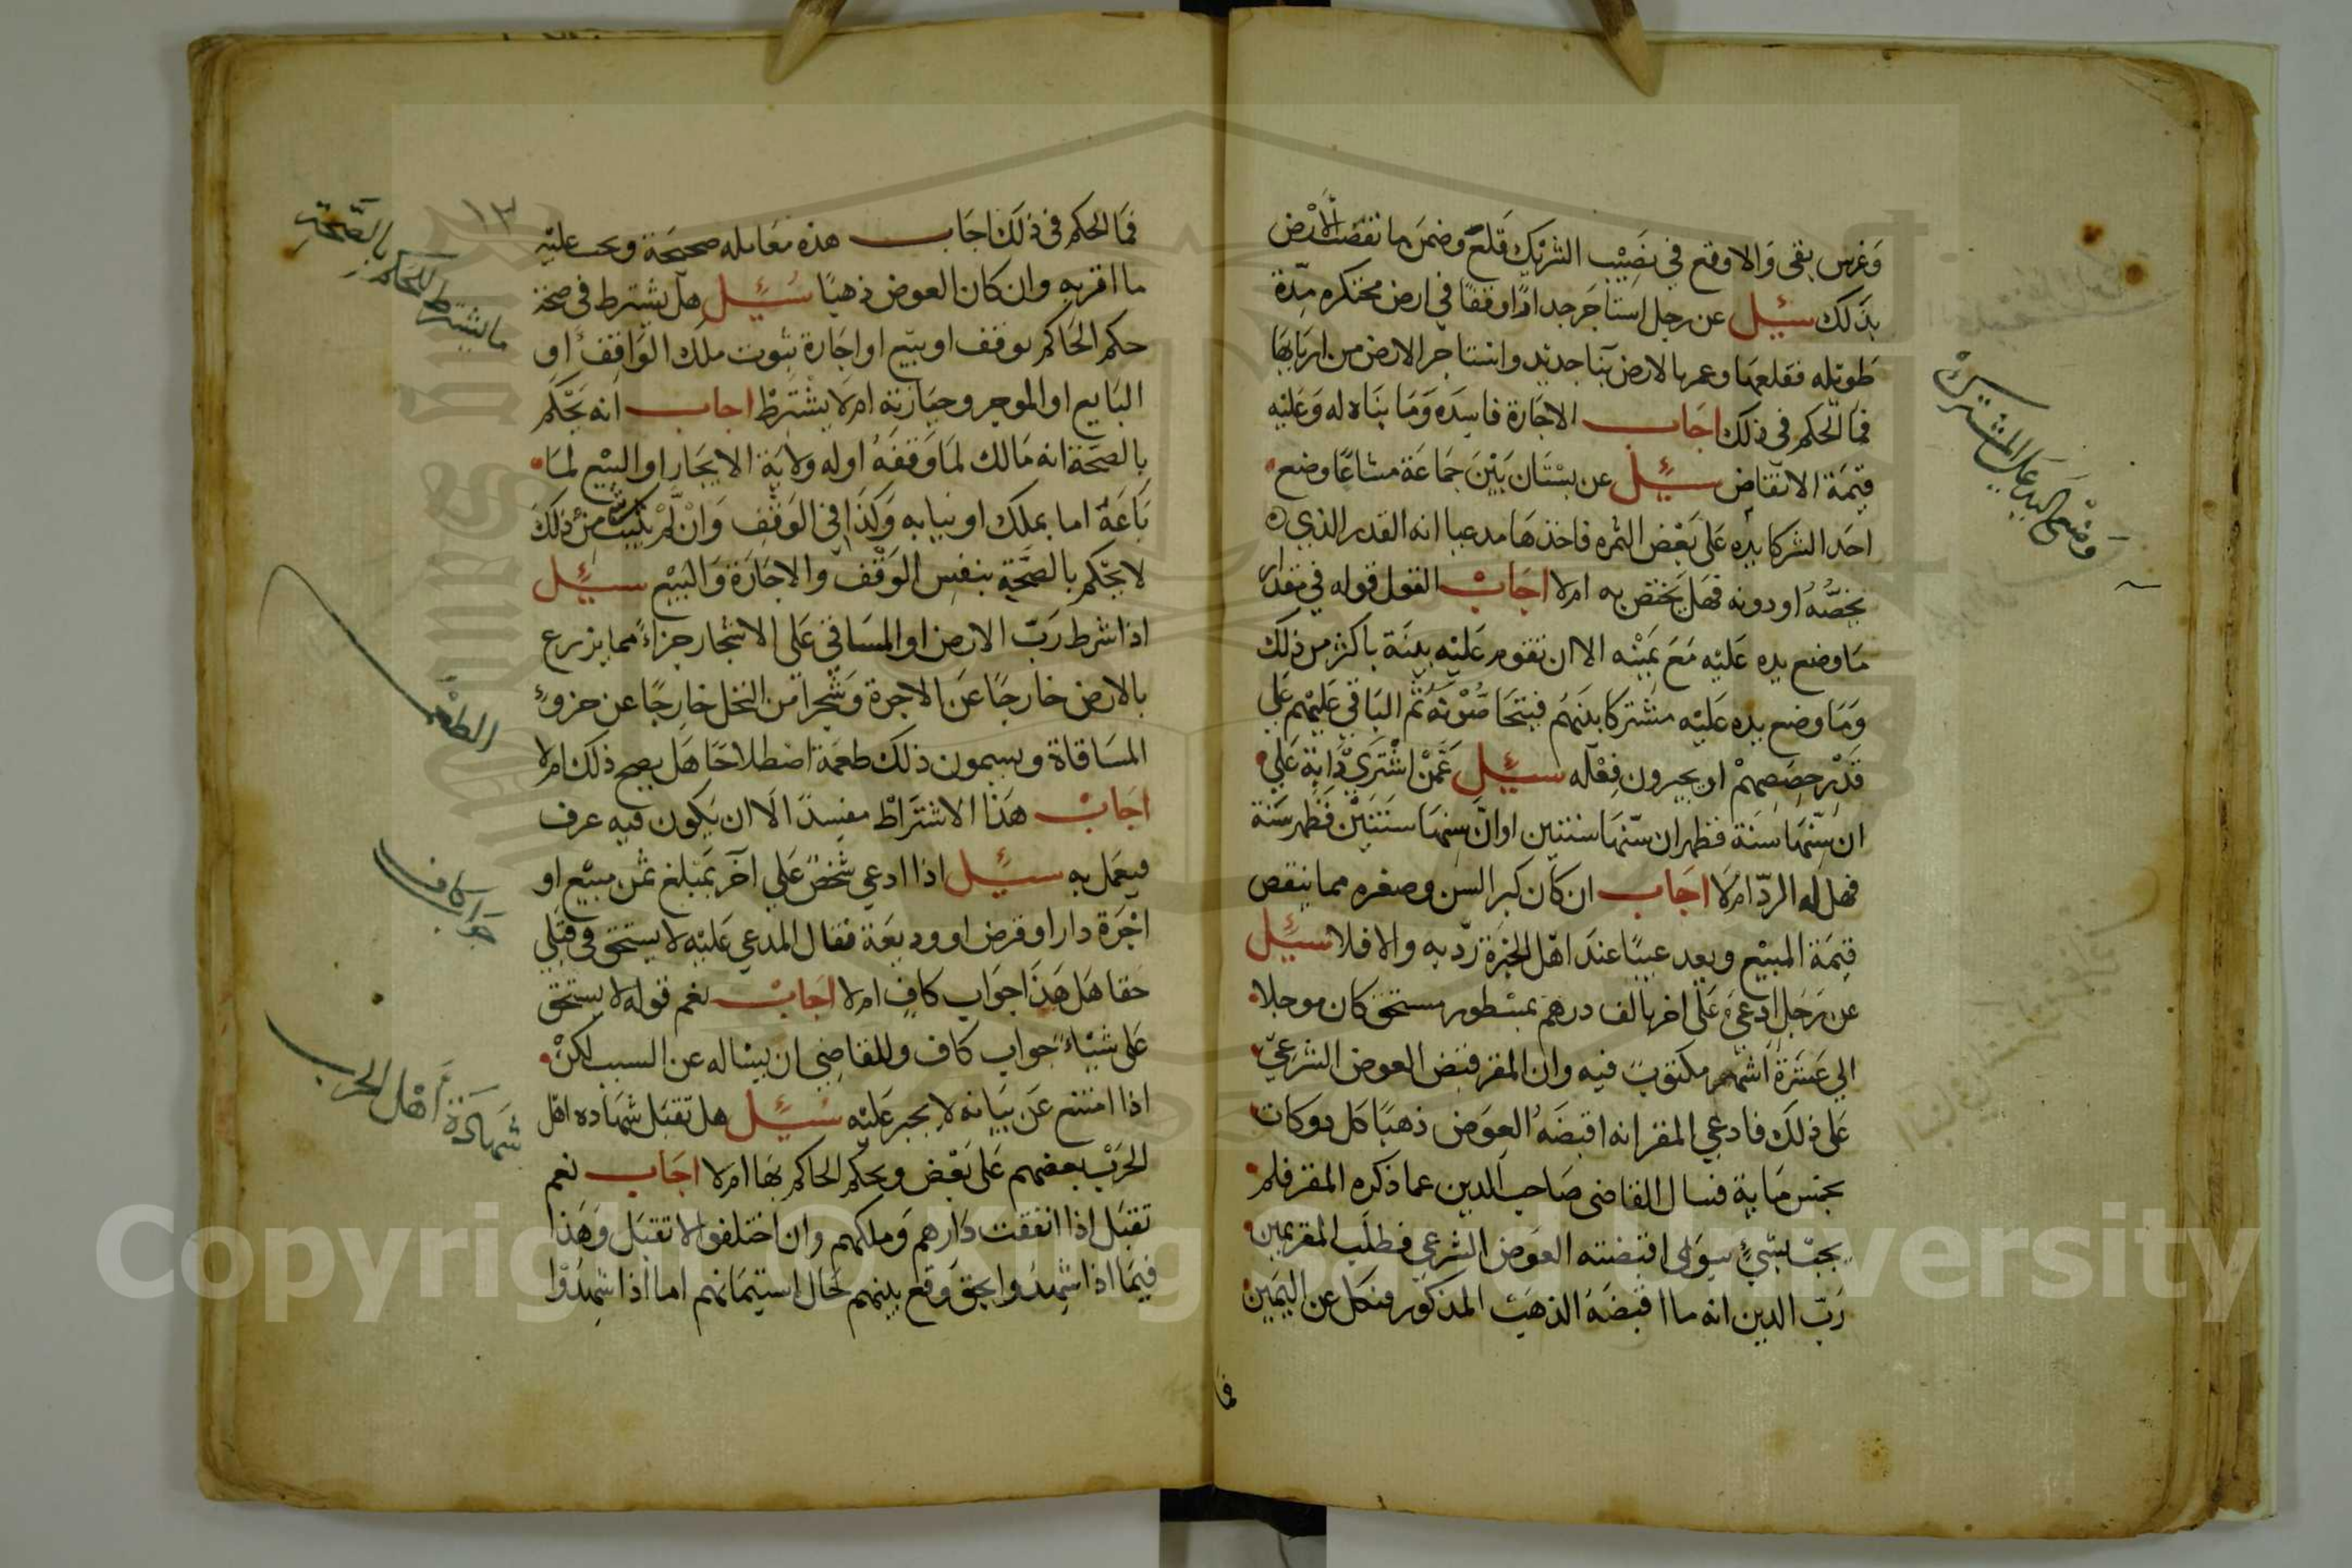 وغرس بقى والا وقع في نصيب الشريك قلع وضمن ما نقصت الارض
بذلك سئل عن رجل استاجر جدارا وقفا في ارض محتكره مدة
طويله فقلعها وعمر بالارض بنا جديد واستاجر الارض من اربابها
فما الحكم في ذلك اجاب الاجارة فاسده وما بناه له وعليه
قيمة الانقاض سئل عن بستان بين جماعة مشاعا وضع
احد الشركا يده على بعض الثمره فاخذها مدعيا انه القدر الذي
يخصه او دونه فهل يختص به ام لا اجاب القول قوله في مقدار
ما وضع يده عليه مع يمينه الا ان تقوم عليه بينة باكثر من ذلك
وما وضع يده عليه مشتركا بينهم فيتحاصونه ثم الباقي عليهم على
قدر حصصهم او يجيرون فعله سئل عمن اشترى دابة على
ان سنها سنة فظهر ان سنها سنتين او ان سنها سنتين فظهر سنة
فهل له الرد ام لا اجاب ان كان كبر السن وصغره مما ينقص
قيمة المبيع ويعد عيبا عند اهل الخبرة رد به والا فلا سئل
عن رجل ادعى على اخر بالف درهم بمسطور مستحق كان موجلا
الي عشرة اشهر مكتوب فيه وان المقر قبض العوض الشرعي
على ذلك فادعي المقر انه اقبضه العوض ذهبا كل دوكات
بخمس ماية فسال القاضي صاحب الدين عما ذكره المقر فلم
يجب بشيء سوى اقبضته العوض الشرعي فطلب المقر يمين
رب الدين انه ما اقبضه الذهب المذكور فنكل عن اليمين
فما
وضع اليد على المشترك
١٣
فما الحكم في ذلك اجاب هذه معامله صحيحة ويجب عليه
ما اقر به وان كان العوض ذهبا سئل هل يشترط في صحة
حكم الحاكم بوقف او بيع او اجارة ثبوت ملك الواقف او
البايع او الموجر وحيازته ام لا يشترط اجاب انه يحكم
بالصحة انه مالك لما وقفه او له ولاية الايجار او البيع لما
باعه اما بملك او نيابه وكذا في الوقف وان لم يثبت شي من ذلك
لا يحكم بالصحة بنفس الوقف والاجارة والبيع سئل
اذا شرط رب الارض او المساقي على الاشجار جزاء مما يزرع
بالارض خارجا عن الاجرة وشجرا من النخل خارجا عن جزو
المساقاة ويسمون ذلك طعمة اصطلاحا هل يصح ذلك ام لا
اجاب هذا الاشتراط مفسد الا ان يكون فيه عرف
فيعمل به سئل اذا ادعي شخص علي آخر بمبلغ ثمن مبيع او
اجرة دار او قرض او وديعة فقال المدعي عليه لا يستحق في قبلي
حقا هل هذا جواب كاف ام لا اجاب نعم قوله لا يستحق
على شيئاء جواب كاف وللقاضي ان يساله عن السبب لكن
اذا امتنع عن بيانه لا يجبر عليه سئل هل تقبل شهاده اهل
الحرب بعضهم على بعض ويحكم الحاكم بها ام لا اجاب نعم
تقبل اذا اتفقت دارهم وملكهم وان اختلفوا لا تقبل وهذا
فيما اذا شهدوا بحق وقع بينهم لحال استيمانهم اما اذا شهدوا
ما يشترط للحكم بالصحة
الطعمة
جواب كاف
شهادة اهل الحرب
Copyright © King Saud University